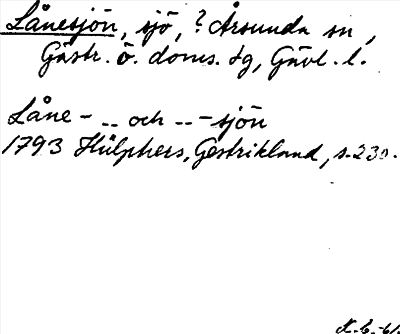 Lånesjön, sjö, ? Årsunda sn,
Gästr. ö. doms. tg, Gävl. l.
Låne- .. och ..-sjön
1793 Hülphers, Gestrikland, s. 230.